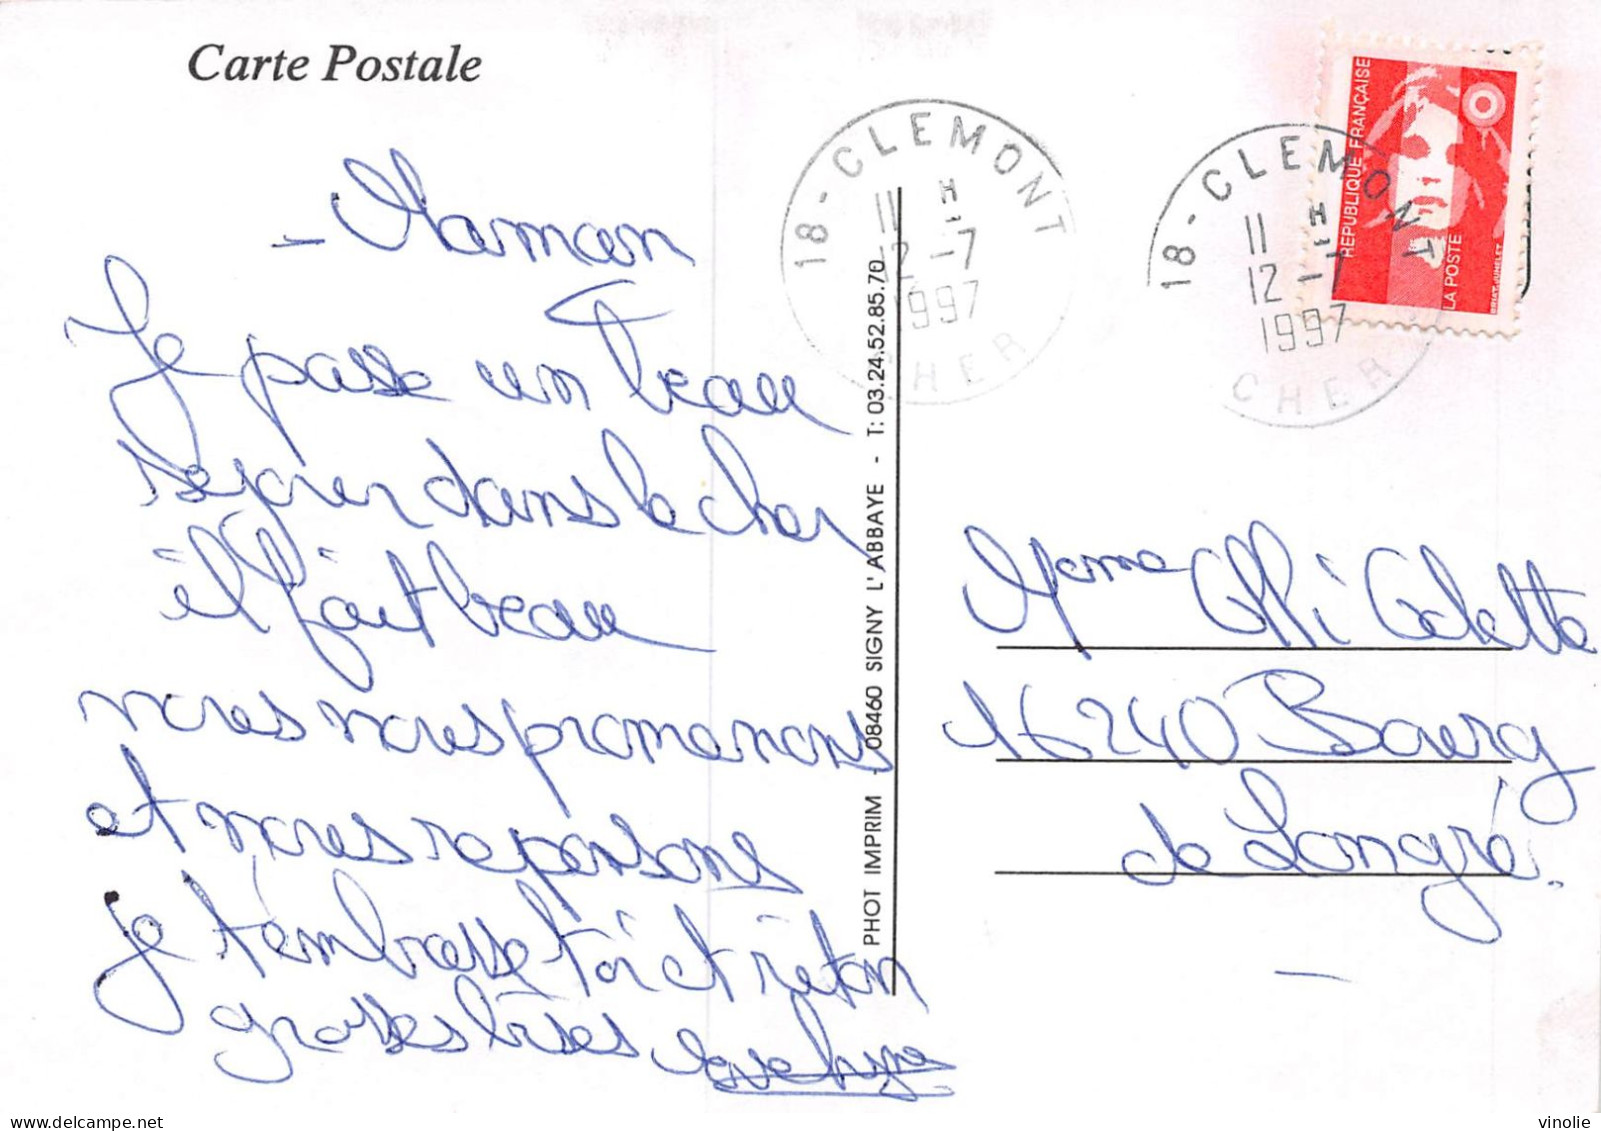 Carte Postale
- Maman
Je passe un beau
sejour dans le cher
il fait beau
nous nous promenons
et nous reposons
je t'embrasse toi et
grosses bises Evelyne
PHOT IMPRIM - 08460 SIGNY L'ABBAYE - T: 03.24.52.85.70
18 - CLEMONT
11 H
12 - 7
1997
CHER
18 - CLEMONT
11 H
12 - 7
1997
CHER
REPUBLIQUE FRANÇAISE
LA POSTE
BRIAT-JUMELET
Mame Colette
16240 Bourg
de Longré.
delcampe.net
vinolie